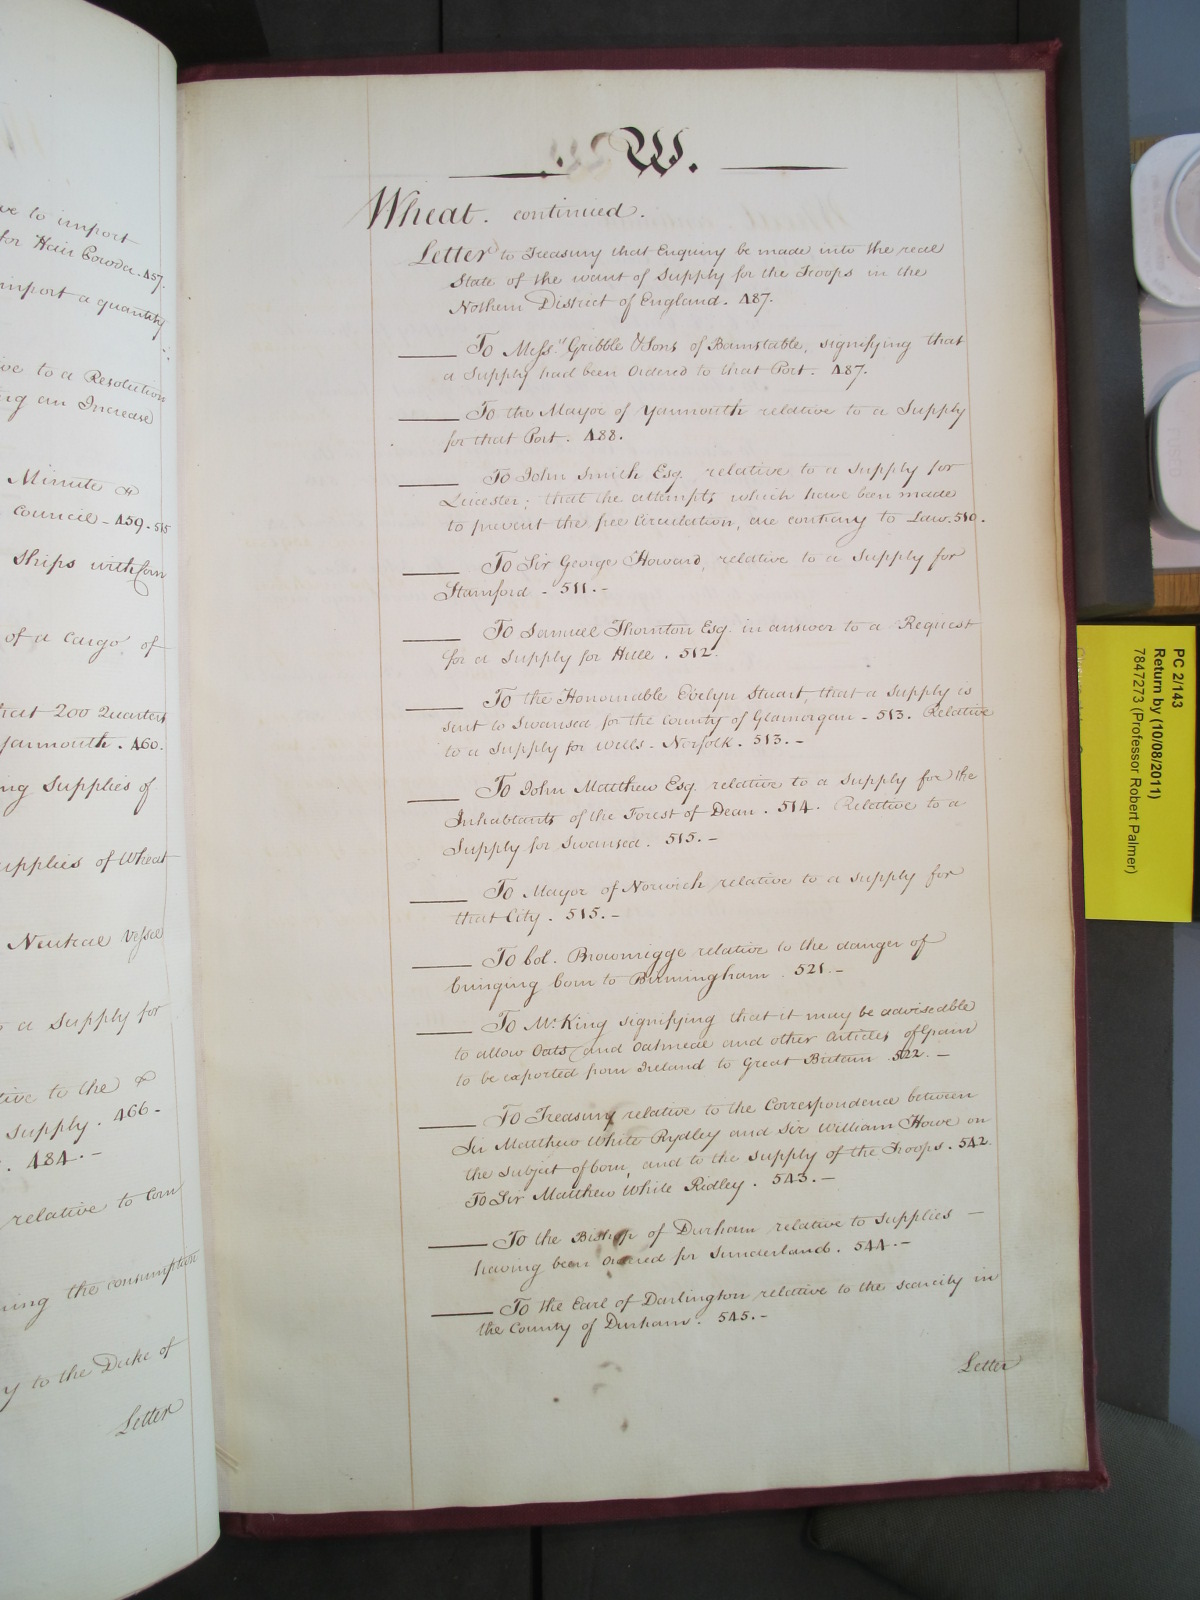 ve to import
for Hair Powder. 457.
import a quantity
ive to a Resolution
ng an Increase
Minute &
Council - 459. 515
Ships with Corn
of a Cargo of
that 200 Quarters
Yarmouth. 460.
ing Supplies of
upplies of Wheat
Neutral Vessel
a Supply for
tive to the &
Supply. 466-
. 484. -
relative to Corn
ing the consumption
y to the Duke of
Letter
W.
Wheat. continued.
Letter to Treasury that Enquiry be made into the real
State of the want of Supply for the Troops in the
Nothern District of England. 487.
To Mess.rs Gribble & Sons of Barnstable, signifying that
a Supply had been Ordered to that Port. 487.
To the Mayor of Yarmouth relative to a Supply
for that Port. 488.
To John Smith Esq. relative to a Supply for
Leicester; that the attempts which have been made
to prevent the free Circulation, are contrary to Law. 510.
To Sir George Howard, relative to a Supply for
Stamford - 511. -
To Samuel Thornton Esq. in answer to a Request
for a Supply for Hull. 512.
To the Honourable Evelyn Stuart, that a Supply is
sent to Swansea for the County of Glamorgan - 513. Relative
to a Supply for Wells - Norfolk. 513. -
To John Matthew Esq. relative to a Supply for the
Inhabtants of the Forest of Dean. 514. Relative to a
Supply for Swansea. 515. -
To Mayor of Norwich relative to a Supply for
that City. 515. -
To Col. Brownrigge relative to the danger of
bringing Corn to Birmingham. 521. -
To Mr. King signifying that it may be adviseable
to allow Oats and Oatmeal and other Articles of Grain
to be exported from Ireland to Great Britain 522. -
To Treasury relative to the Correspondence between
Sir Matthew White Rydley and Sir William Howe on
the subject of Corn, and to the Supply of the Troops. 542.
To Sir Matthew White Ridley. 543. -
To the Bishop of Durham relative to Supplies -
having been Ordered for Sunderland. 544. -
To the Earl of Darlington relative to the scarcity in
the County of Durham. 545. -
Letter
PC 2/143
Return by (10/08/2011)
7847273 (Professor Robert Palmer)